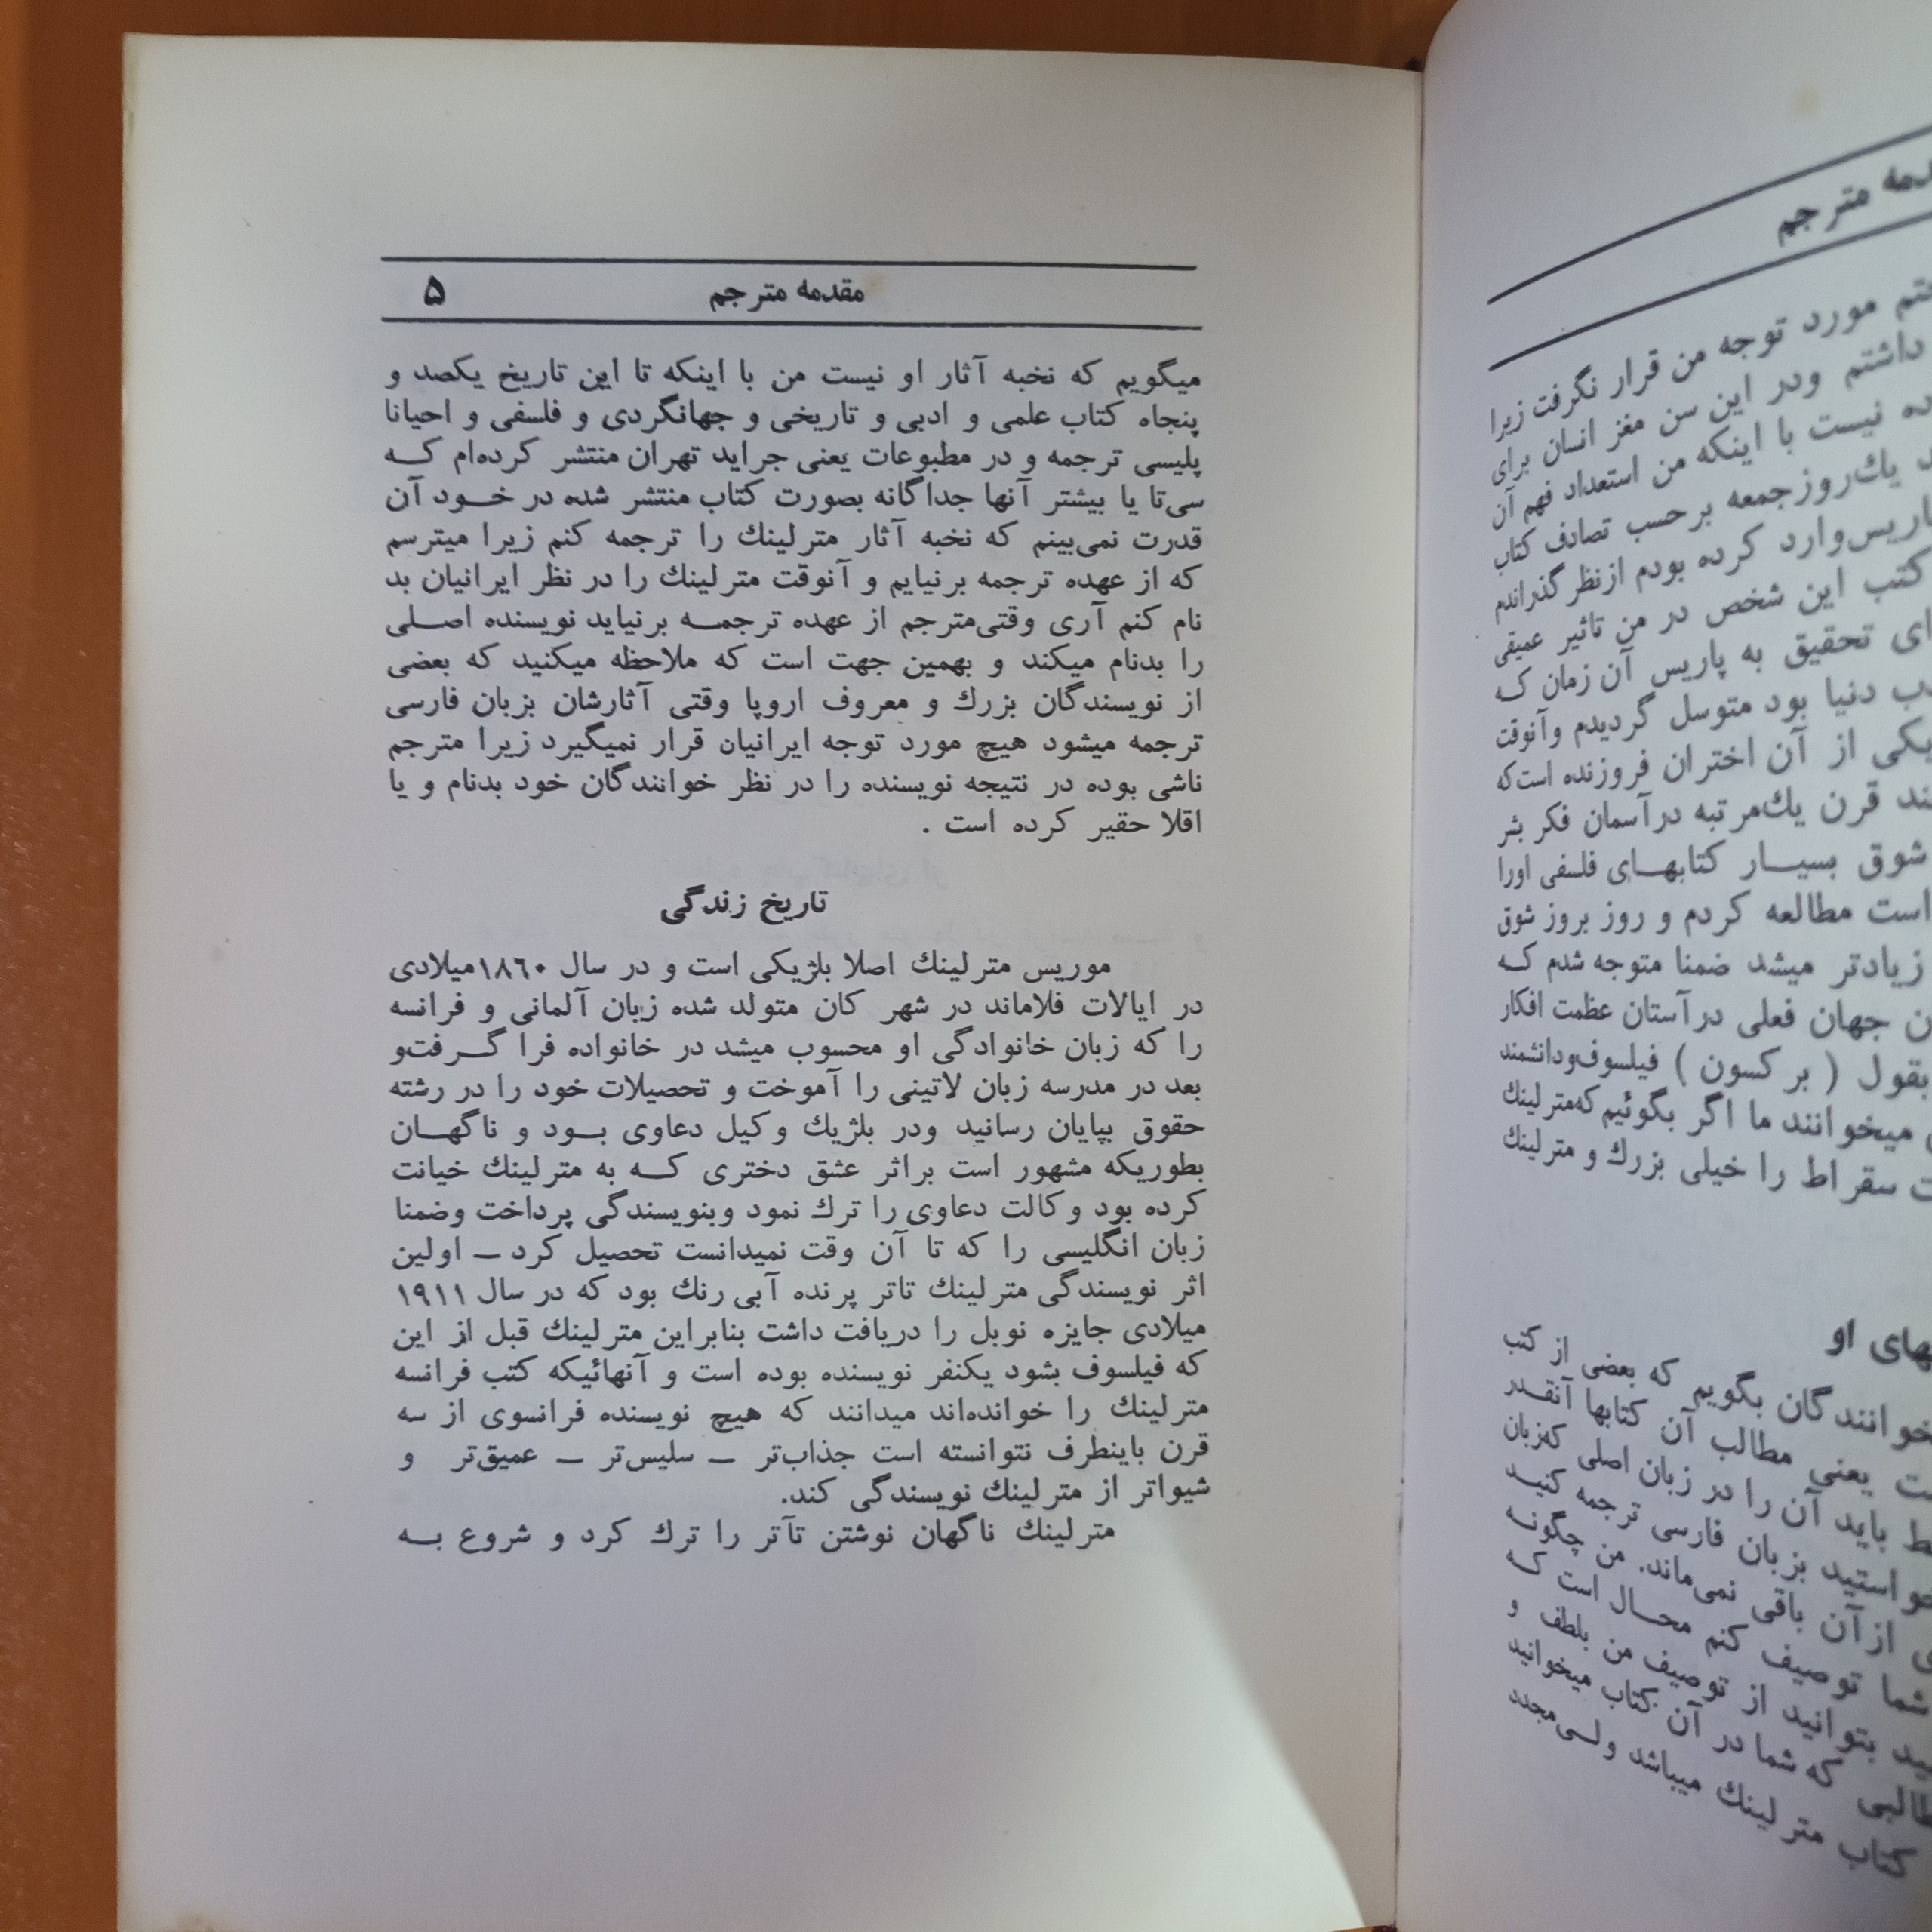 مقدمه مترجم ۵
میگویم که نخبه آثار او نیست من با اینکه تا این تاریخ یکصد و
پنجاه کتاب علمی و ادبی و تاریخی و جهانگردی و فلسفی و احیانا
پلیسی ترجمه و در مطبوعات یعنی جراید تهران منتشر کرده‌ام کــه
سی‌تا یا بیشتر آنها جداگانه بصورت کتاب منتشر شده در خــود آن
قدرت نمی‌بینم که نخبه آثار مترلینك را ترجمه کنم زیرا میترسم
که از عهده ترجمه برنیایم و آنوقت مترلینك را در نظر ایرانیان بد
نام کنم آری وقتی‌مترجم از عهده ترجمــه برنیاید نویسنده اصــلی
را بدنام میکند و بهمین جهت است که ملاحظه میکنید که بعضی
از نویسندگان بزرك و معروف اروپا وقتی آثارشان بزبان فارسی
ترجمه میشود هیچ مورد توجه ایرانیان قرار نمیگیرد زیرا مترجم
ناشی بوده در نتیجه نویسنده را در نظر خوانندگان خود بدنام و یا
اقلا حقیر کرده است .
تاریخ زندگی
موریس مترلینك اصلا بلژیکی است و در سال ۱۸٦۰میلادی
در ایالات فلاماند در شهر کان متولد شده زبان آلمانی و فرانسه
را که زبان خانوادگی او محسوب میشد در خانواده فرا گــرفت‌و
بعد در مدرسه زبان لاتینی را آموخت و تحصیلات خود را در رشته
حقوق بپایان رسانید ودر بلژیك وکیل دعاوی بــود و ناگهــان
بطوریکه مشهور است براثر عشق دختری کــه به مترلینك خیانت
کرده بود وکالت دعاوی را ترك نمود وبنویسندگی پرداخت وضمنا
زبان انگلیسی را که تا آن وقت نمیدانست تحصیل کرد ــ اولین
اثر نویسندگی مترلینك تاتر پرنده آبی رنك بود که در سال ۱۹۱۱
میلادی جایزه نوبل را دریافت داشت بنابراین مترلینك قبل از این
که فیلسوف بشود یکنفر نویسنده بوده است و آنهائیکه کتب فرانسه
مترلینك را خوانده‌اند میدانند که هیچ نویسنده فرانسوی از سه
قرن باینطرف نتوانسته است جذاب‌تر ــ سلیس‌تر ــ عمیق‌تر و
شیواتر از مترلینك نویسندگی کند.
مترلینك ناگهان نوشتن تآتر را ترك کرد و شروع بــه
مترجم
مورد توجه من قرار نگرفت زیرا
داشتم ودر این سن مغز انسان برای
نیست با اینکه من استعداد فهم آن
یك‌روزجمعه برحسب تصادف کتاب
وارد کرده بودم ازنظر گذراندم
کتب این شخص در من تاثیر عمیقی
تحقیق به پاریس آن زمان کــه
دنیا بود متوسل گردیدم وآنوقت
یکی از آن اختران فروزنده است‌که
قرن یك‌مرتبه درآسمان فکر بشر
شوق بسیــار کتابهــای فلسفی اورا
است مطالعه کردم و روز بروز شوق
زیادتر میشد ضمنا متوجه شدم کــه
جهان فعلی درآستان عظمت افکار
بقول ( برکسون ) فیلسوف‌ودانشمند
میخوانند ما اگر بگوئیم که‌مترلینك
سقراط را خیلی بزرك و مترلینك
او
بگویم که بعضی از کتب
یعنی مطالب آن کتابها آنقــدر
باید آن را در زبان اصلی که‌زبان
بزبان فارسی ترجمه کنیــد
ازآن باقی نمی‌ماند. من چگونــه
شما توصیف کنم محــال است کــه
بتوانید از توصیف من بلطف و
که شما در آن کتاب میخوانید
کتاب مترلینك میباشد ولــی‌مجدد